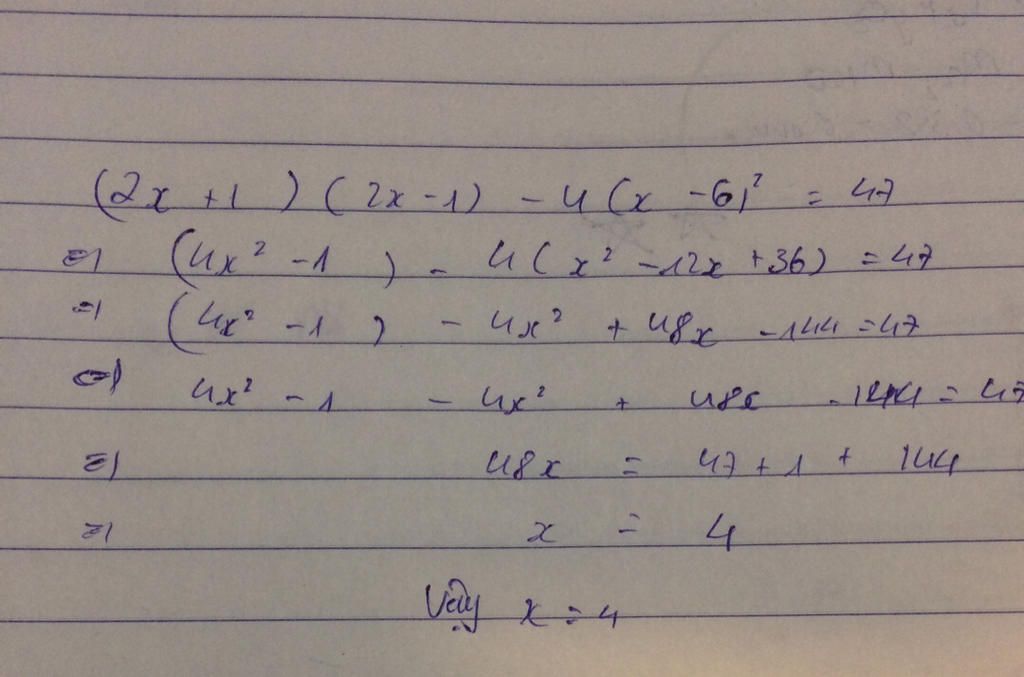 (2x + 1) (2x - 1) - 4 (x - 6)² = 47
=) (4x² - 1) - 4 ( x² - 12x + 36) = 47
=) (4x² - 1) - 4x² + 48x - 144 = 47
=) 4x² - 1 - 4x² + 48x - 144 = 47
=) 48x = 47 + 1 + 144
=) x = 4
Vậy x = 4